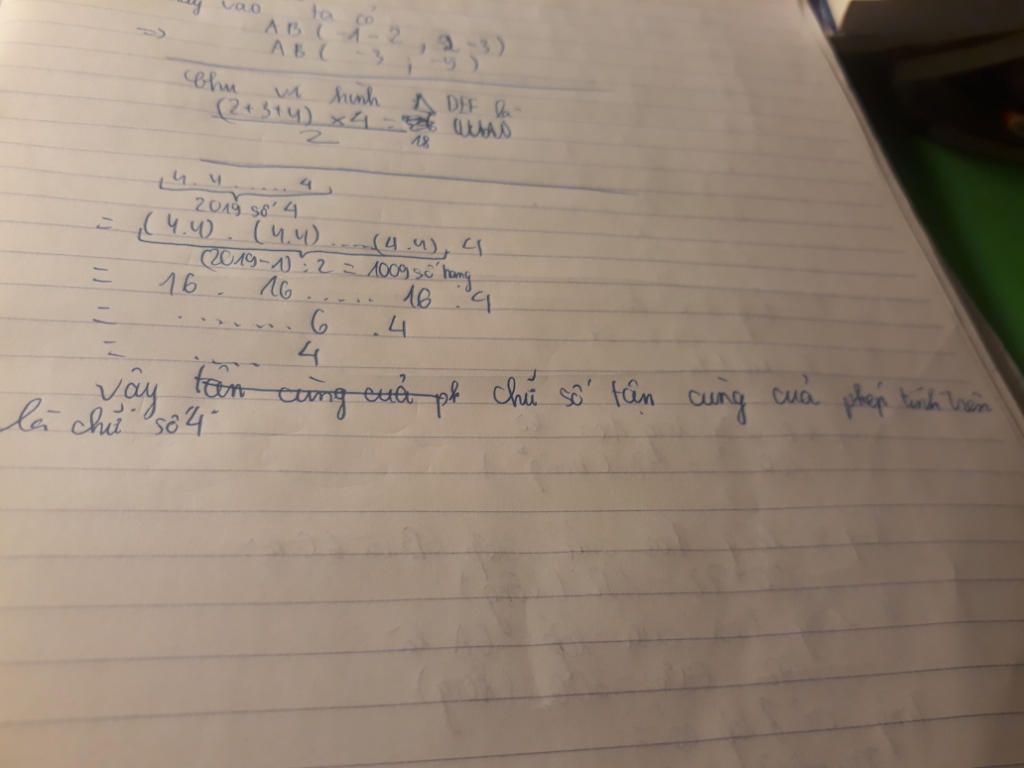 vào ta có
=> AB ( -1 - 2 , -3)
AB ( -3 , )
Chu vi hình Δ DEF
(2+3+4) x 4 =
2
18
4. 4. .... 4
2019 số 4
= (4.4) . (4.4) .... (4.4) . 4
(2019-1) : 2 = 1009 số hạng
= 16 . 16 ..... 16 . 4
= ........ 6 .4
= ..... 4
Vậy tận cùng của ph chữ số tận cùng của phép tính trên
là chữ số 4